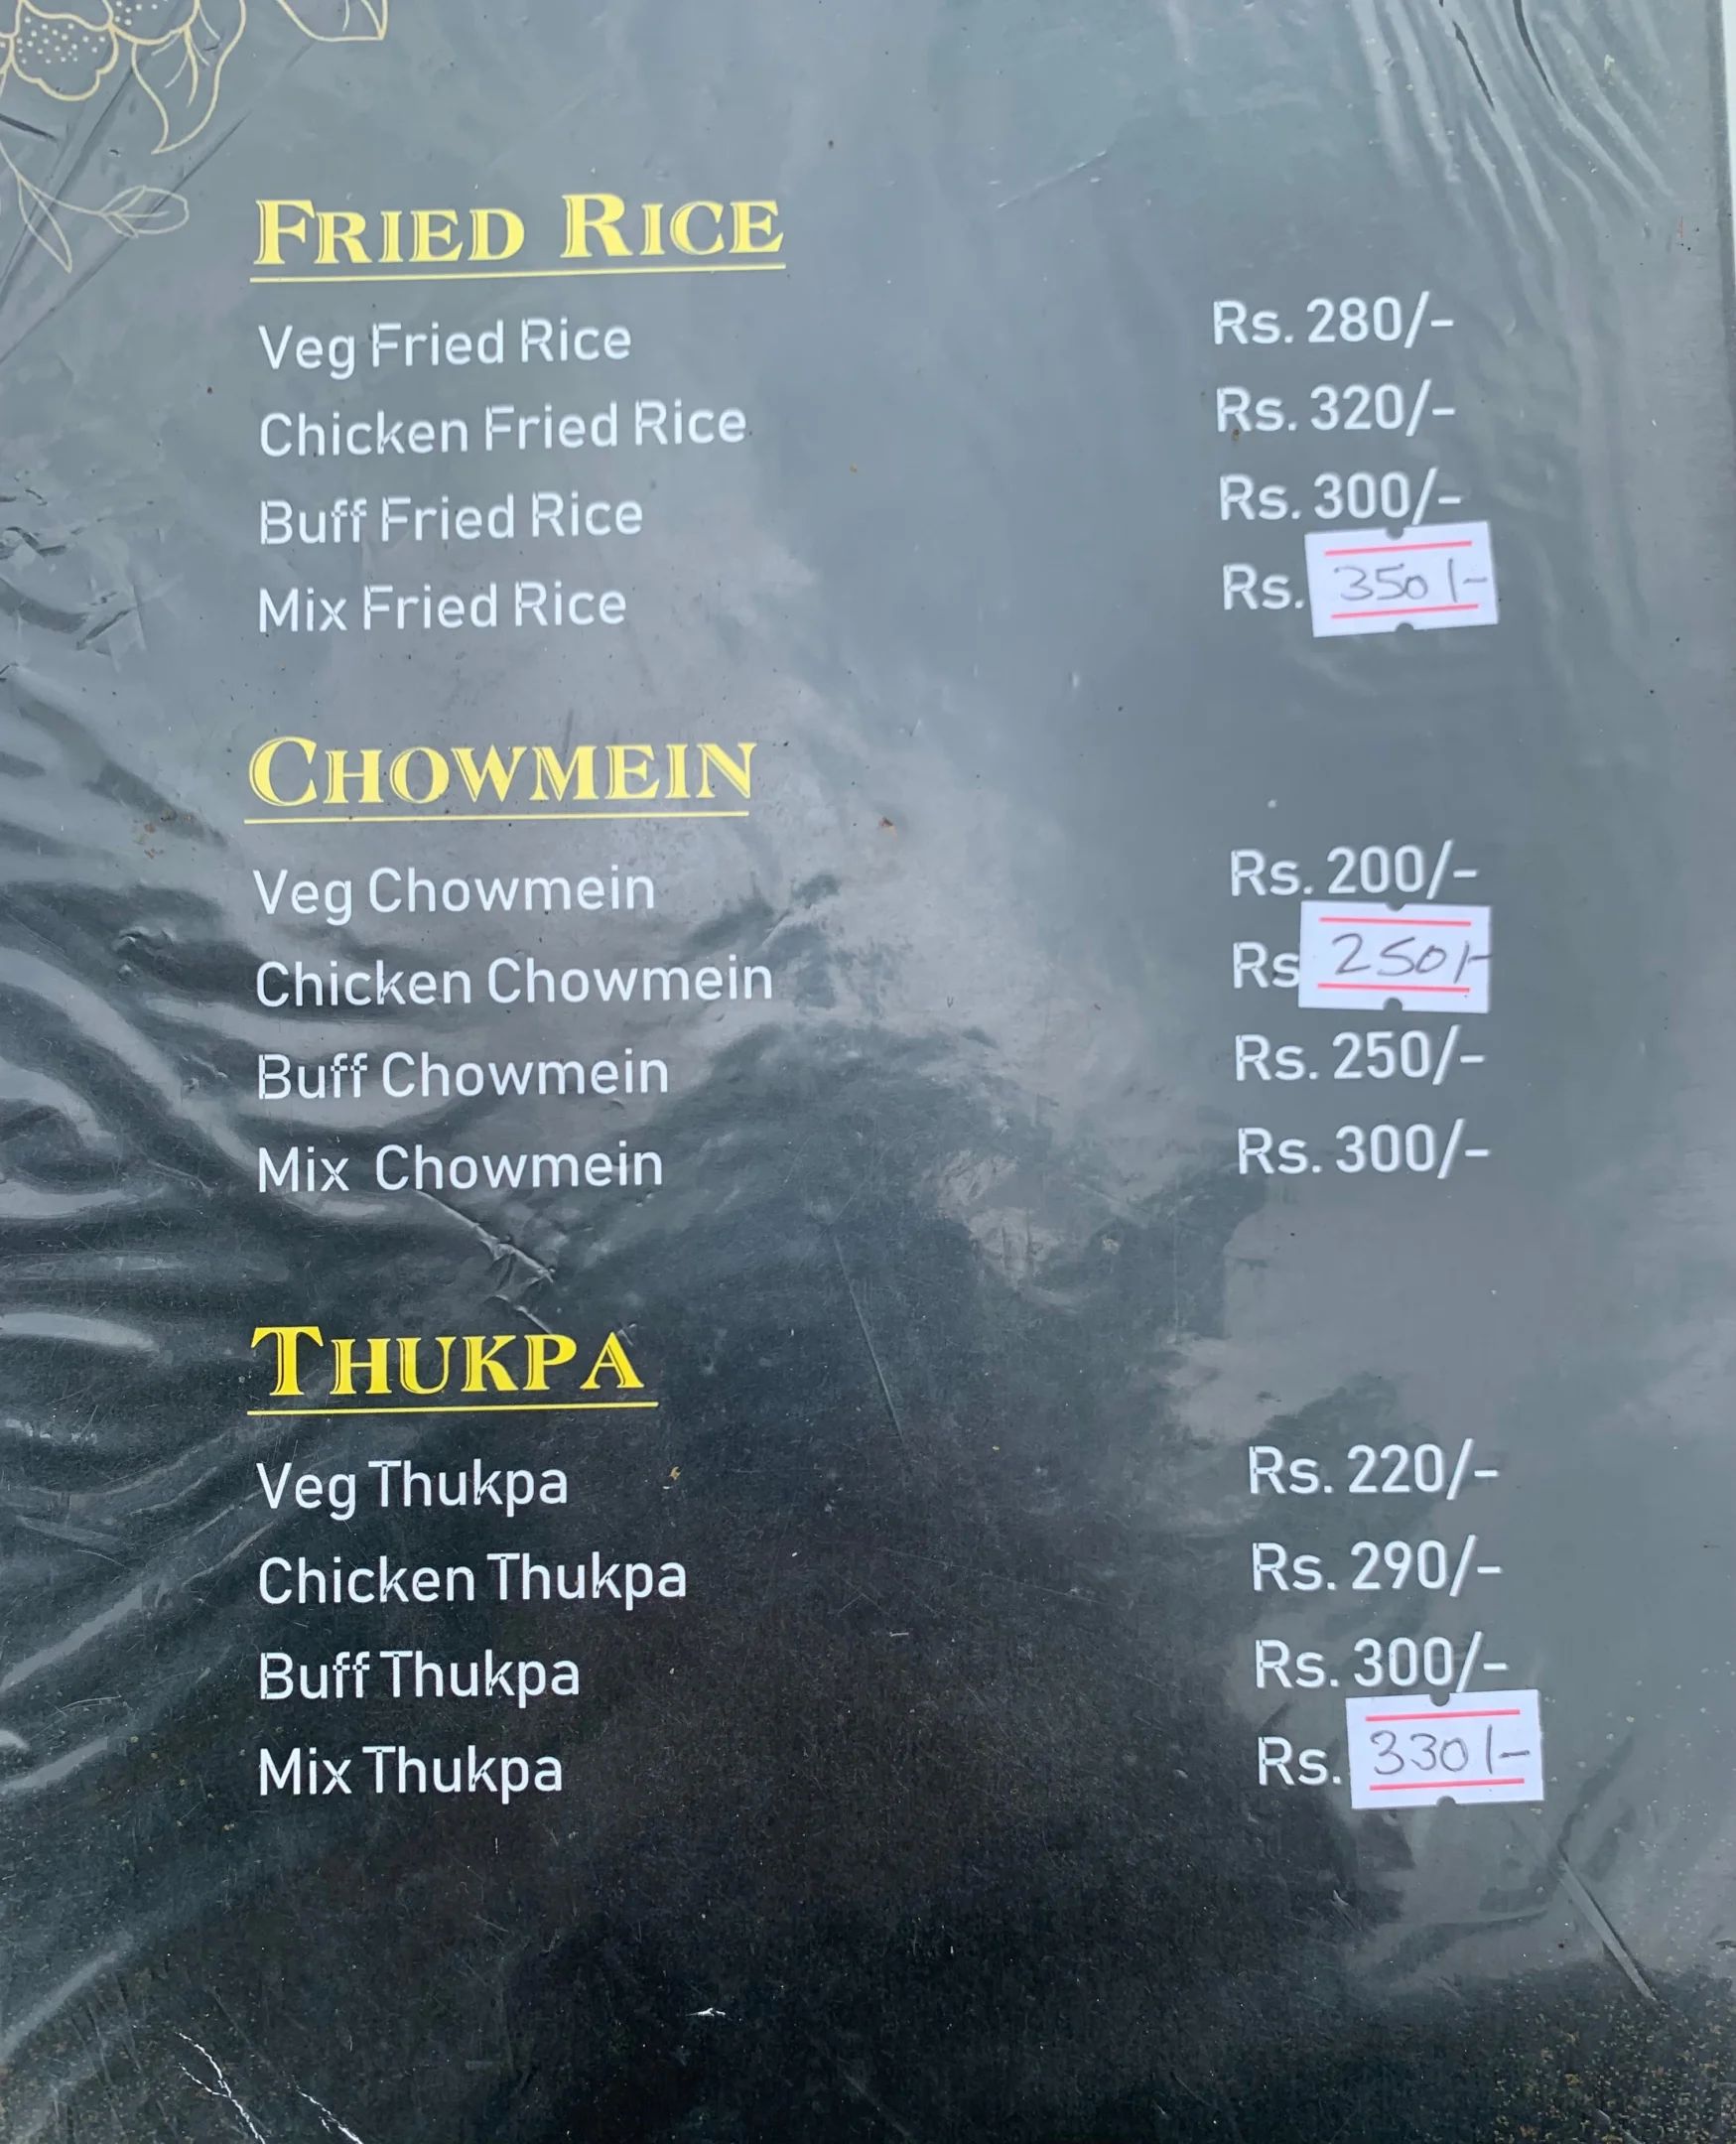 FRIED RICE
Veg Fried Rice Rs. 280/-
Chicken Fried Rice Rs. 320/-
Buff Fried Rice Rs. 300/-
Mix Fried Rice Rs. 350/-
CHOWMEIN
Veg Chowmein Rs. 200/-
Chicken Chowmein Rs 250/-
Buff Chowmein Rs. 250/-
Mix Chowmein Rs. 300/-
THUKPA
Veg Thukpa Rs. 220/-
Chicken Thukpa Rs. 290/-
Buff Thukpa Rs. 300/-
Mix Thukpa Rs. 330/-